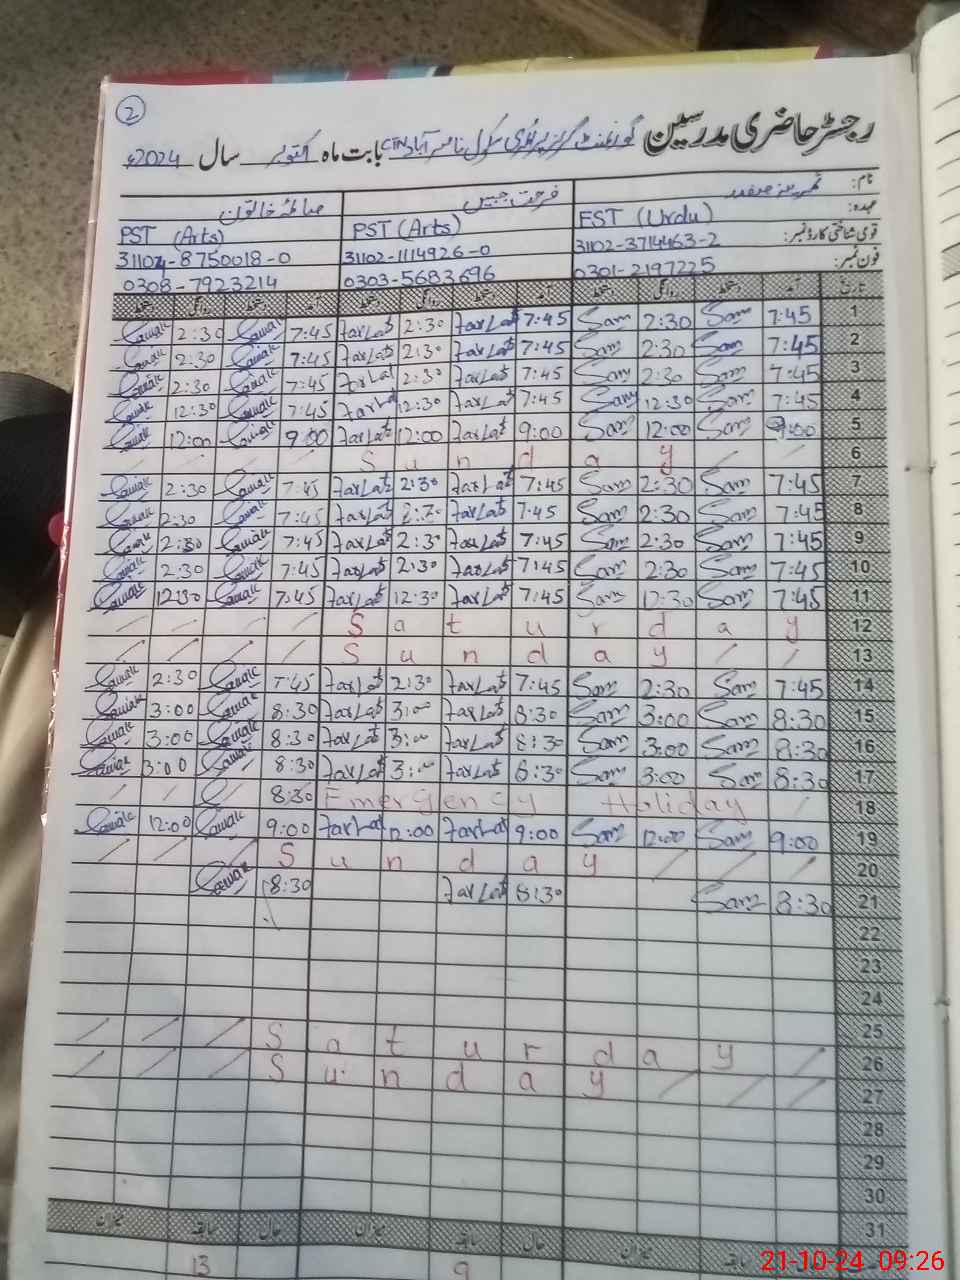 2
رجسٹر حاضری مدرسین گورنمنٹ گرلز پرائمری سکول ناصر آباد CTN بابت ماہ اکتوبر سال 2024ء
نام: فرحت جبیں صائمہ خاتون
عہدہ: EST (Urdu) PST (Arts) PST (Arts)
قومی شناختی کارڈ نمبر: 31102-3714463-2 31102-1114926-0 31104-8750018-0
فون نمبر: 0301-2197225 0303-5683696 0308-7923214
تاریخ آمد دستخط روانگی دستخط آمد دستخط روانگی دستخط آمد دستخط روانگی دستخط
1 7:45 Sam 2:30 Sam 7:45 FarLat 2:30 FarLat 7:45 2:30
2 7:45 Sam 2:30 Sam 7:45 FarLat 2:30 FarLat 7:45 2:30
3 7:45 Sam 2:30 Sam 7:45 FarLat 2:30 FarLat 7:45 2:30
4 7:45 Sam 12:30 Sam 7:45 FarLat 12:30 FarLat 7:45 12:30
5 9:00 Sam 12:00 Sam 9:00 FarLat 12:00 FarLat 9:00 12:00
6 Sunday
7 7:45 Sam 2:30 Sam 7:45 FarLat 2:30 FarLat 7:45 2:30
8 7:45 Sam 2:30 Sam 7:45 FarLat 2:30 FarLat 7:45 2:30
9 7:45 Sam 2:30 Sam 7:45 FarLat 2:30 FarLat 7:45 2:30
10 7:45 Sam 2:30 Sam 7:45 FarLat 2:30 FarLat 7:45 2:30
11 7:45 Sam 12:30 Sam 7:45 FarLat 12:30 FarLat 7:45 12:30
12 Saturday
13 Sunday
14 7:45 Sam 2:30 Sam 7:45 FarLat 2:30 FarLat 7:45 2:30
15 8:30 Sam 3:00 Sam 8:30 FarLat 3:00 FarLat 8:30 3:00
16 8:30 Sam 3:00 Sam 8:30 FarLat 3:00 FarLat 8:30 3:00
17 8:30 Sam 3:00 Sam 8:30 FarLat 3:00 FarLat 8:30 3:00
18 Emergency Holiday 8:30
19 9:00 Sam 12:00 Sam 9:00 FarLat 12:00 FarLat 9:00 12:00
20 Sunday
21 8:30 Sam 8:30 FarLat 8:30
22
23
24
25
26 Saturday
27 Sunday
28
29
30
31
سابقہ میزان حال سابقہ میزان حال سابقہ میزان
9 13
21-10-24 09:26